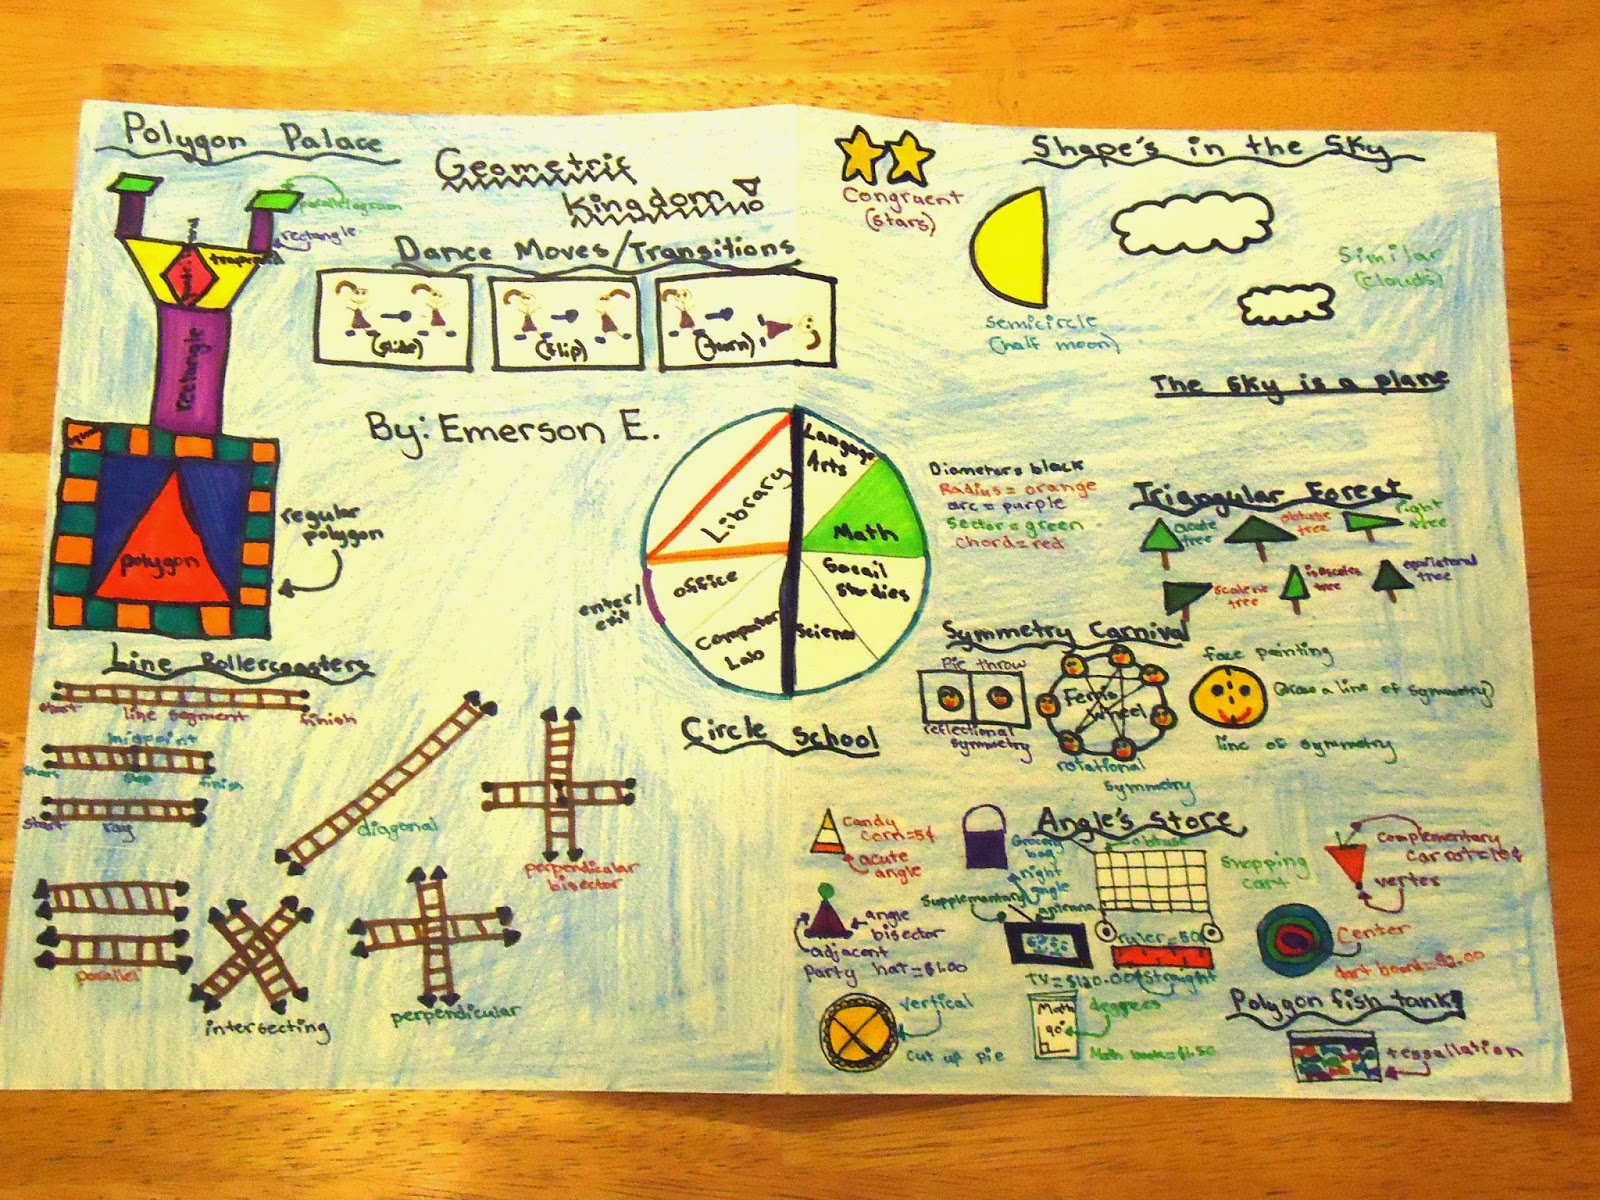 Polygon Palace
Geometric
Kingdom!
parallelogram
rectangle
trapezoid
rectangle
regular
polygon
polygon
Dance Moves/Transitions
(slide)
(flip)
(turn)
By: Emerson E.
Shape's in the Sky
Congruent
(stars)
Semicircle
(half moon)
Similar
(clouds)
The sky is a plane
Library
Language
Arts
Math
Office
Socail
Studies
Computer
Lab
Science
enter/
exit
Circle School
Diameter= black
Radius= orange
arc = purple
Sector=green
Chord=red
Triangular Forest
acute
tree
obtuse
tree
right
tree
scalene
tree
isosceles
tree
equilateral
tree
Line Rollercoasters
start
line segment
finish
midpoint
start
stop
finish
start
ray
diagonal
perpendicular
bisector
parallel
intersecting
perpendicular
Symmetry Carnival
Pie throw
reflectional
symmetry
Ferris
wheel
rotational
symmetry
face painting
(draw a line of symmetry)
line of symmetry
Angle's Store
Candy
corn=5¢
acute
angle
Grocery
bag
right
angle
obtuse
Shopping
cart
complementary
carrot=10¢
vertex
angle
bisector
adjacent
Party hat=$1.00
Supplementary
antenna
TV=$120.00
ruler=50¢
Straight
Center
dart board=$2.00
vertical
cut up pie
Math
90°
degrees
Math book=$1.50
Polygon fish tank!
tessallation